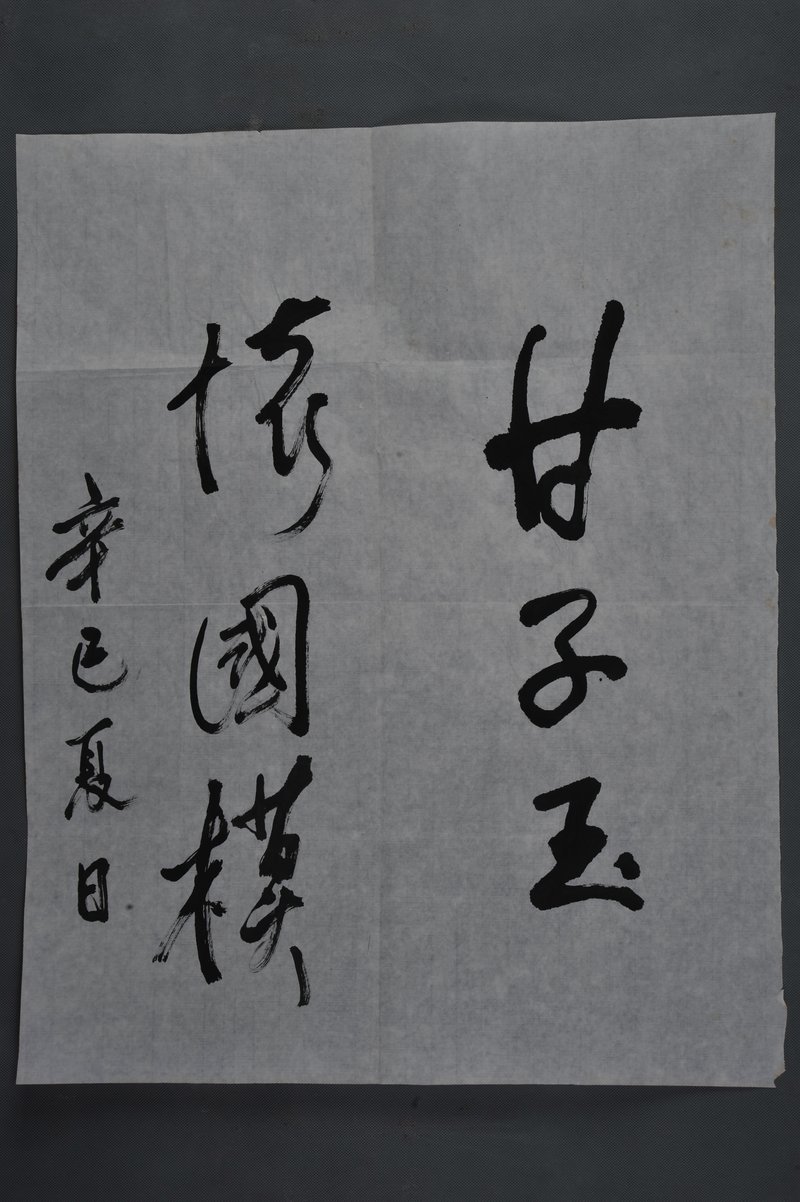 甘子玉
怀國模
辛巳夏日